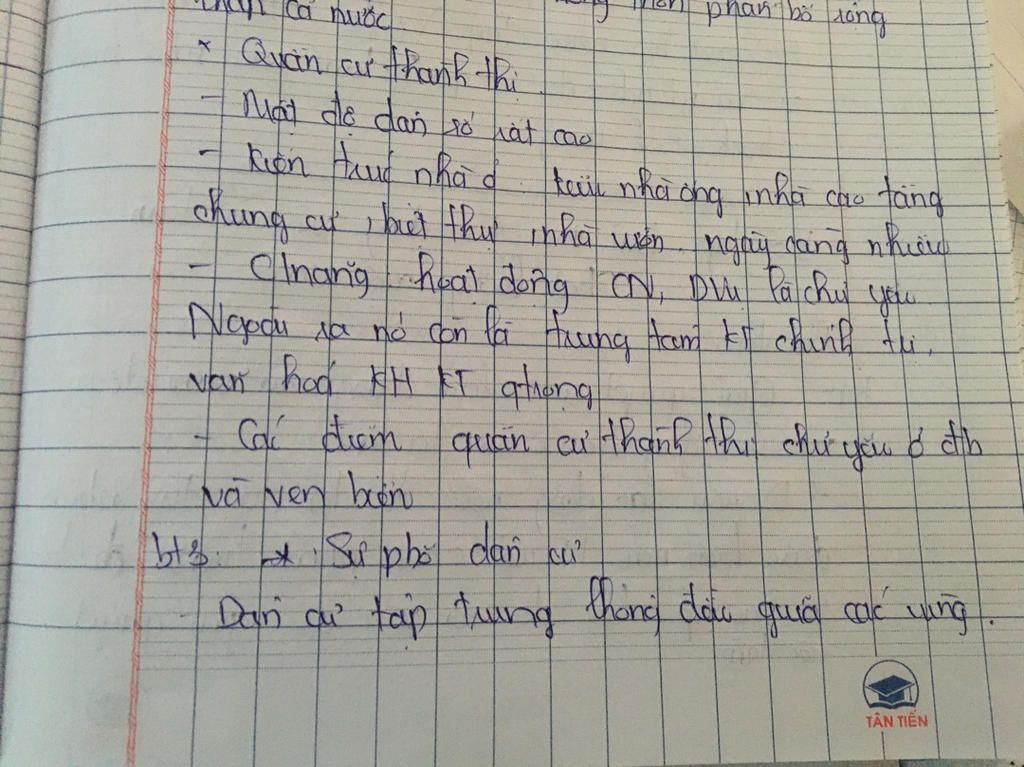 cả nước phân bố rộng
* Quần cư thành thị
- Mật độ dân số rất cao
- Kiến trúc nhà ở kiểu nhà ống, nhà cao tầng
chung cư, biệt thự, nhà vườn ngày càng nhiều
- C/năng hoạt động CN, DVụ là chủ yếu
Ngoài ra nó còn là trung tâm KT chính trị,
văn hoá KH KT qtrọng
- Các điểm quần cư thành thị chủ yếu ở đb
và ven biển
bt3. * Sự phbố dân cư
- Dân cư tập trung không đều giữa các vùng.
TÂN TIẾN